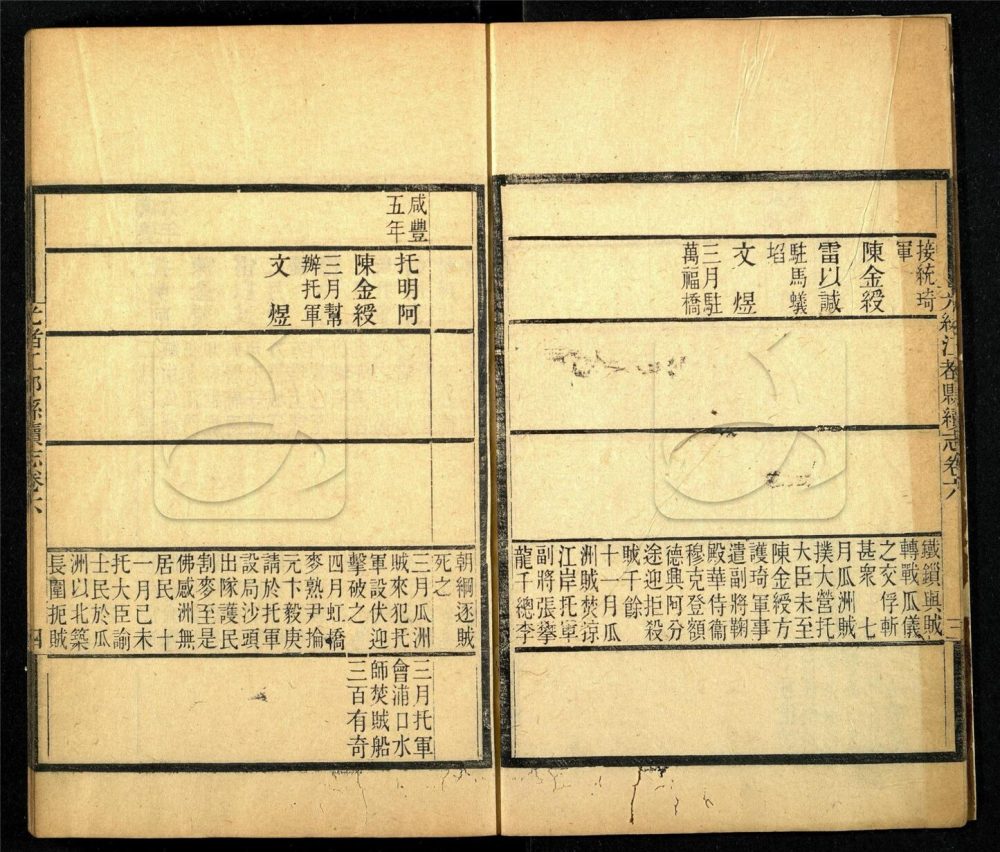 光緒江都縣續志卷六
三
接統琦
軍
陳金綬
雷以諴
駐馬蟻
埳
文 煜
三月駐
萬福橋
鐵鎖與賊
轉戰瓜儀
之交俘斬
甚衆 七
月瓜洲賊
撲大營托
大臣未至
陳金綬方
護琦軍事
遣副將鞠
殿華侍衞
穆克登額
德興阿分
途迎拒殺
賊千餘
十一月瓜
洲賊焚掠
江岸托軍
副將張攀
龍千總李
咸豐
五年
托明阿
陳金綬
三月幫
辦托軍
文 煜
朝綱逐賊
死之
三月瓜洲
賊來犯托
軍設伏迎
擊破之
四月虹橋
麥熟尹掄
元卞毅庚
請於托軍
設局沙頭
出隊護民
割麥至是
佛感洲無
居民 十
一月已未
托大臣諭
士民於瓜
洲以北築
長圍扼賊
三月托軍
會浦口水
師焚賊船
三百有奇
光緒江都縣續志卷六
四